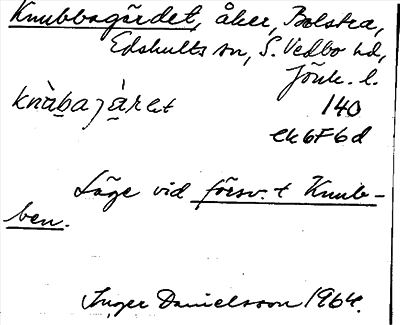 Knubbagärdet, åker, Bolstra,
Edshults sn, S. Vedbo hd,
Jönk. l.
knàbajàret 140
ek6F6d
Läge vid försv. t Knub-
ben.
Inger Danielsson 1964.